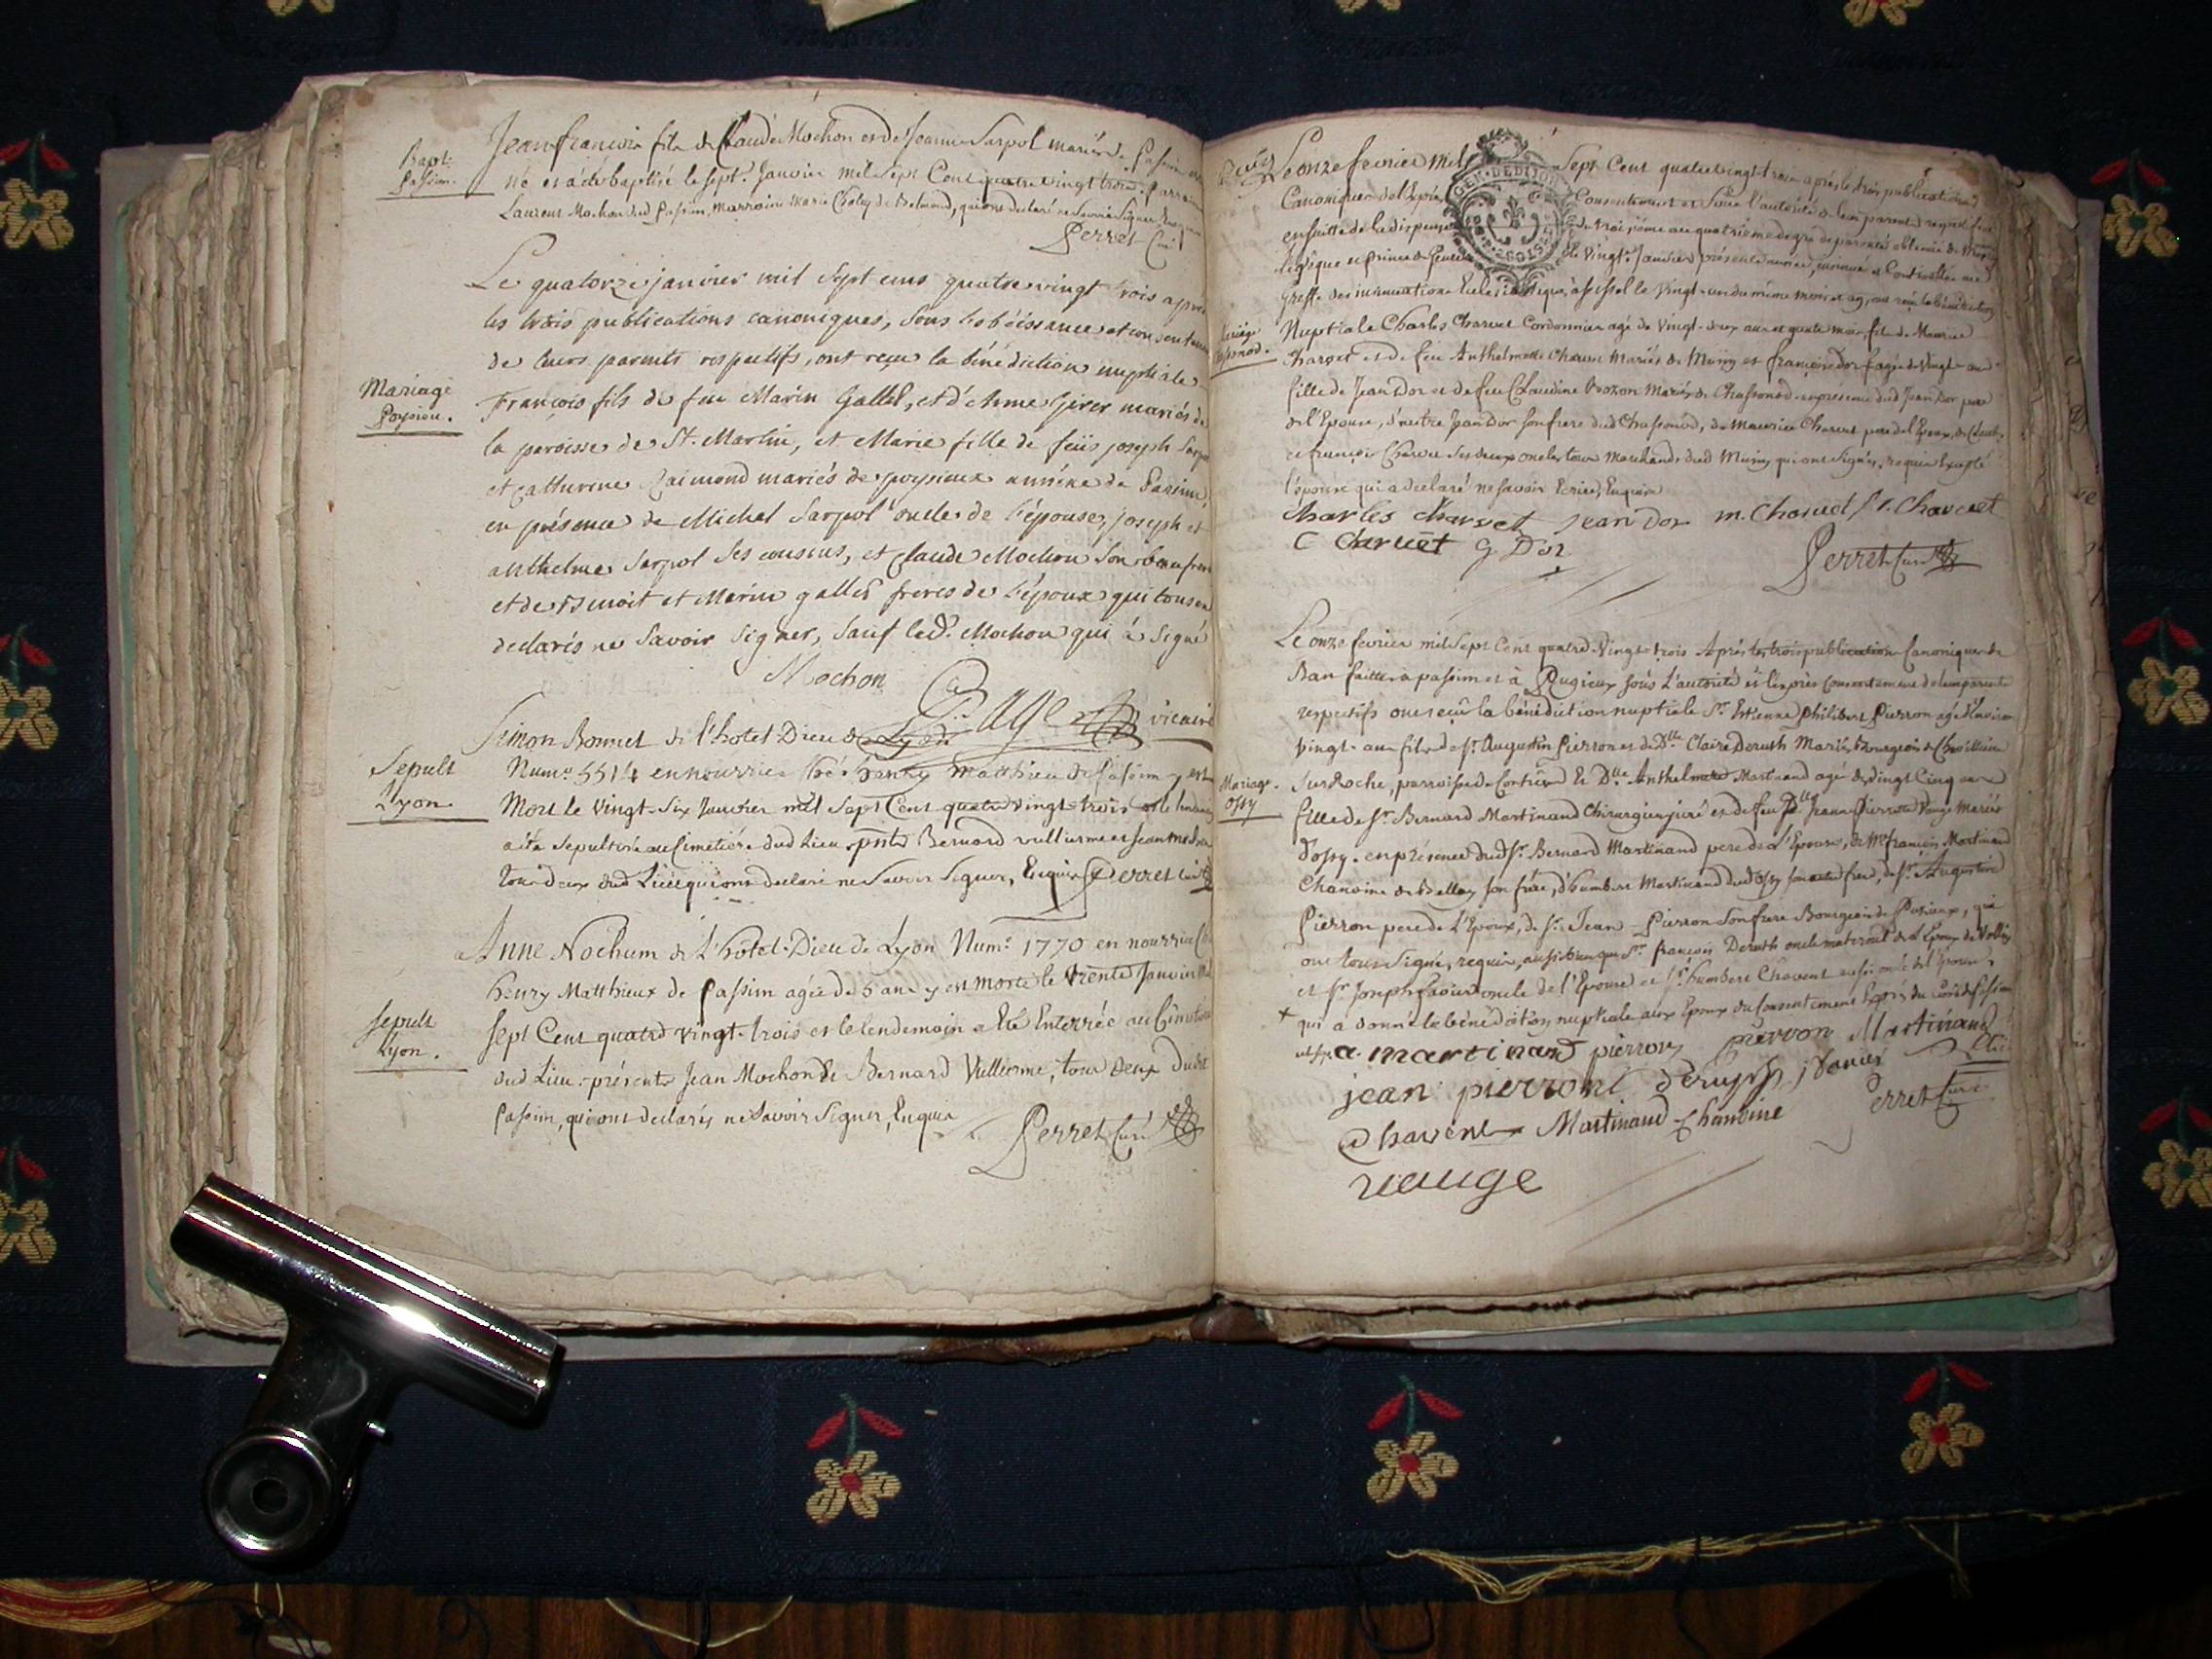 Bapt.
passim.
Jean françois fils de Claude Mochon et de Jeanne Sarpol mariés de passim est
né et a été baptisé le sept. Janvier mil Sept Cent quatre vingt trois. parrain
Laurent Mochon dud passim, marraine Marie de Belmond, qui ont declaré ne Savoir Signer
Perret Curé
Mariage
poysieu.
Le quatorze janvier mil sept cens quatre vingt trois après
les trois publications canoniques, sous l'obéissance et consentement
de leurs parents respectifs, ont reçu la bénédiction nuptiale
François fils de feu Marin Gallet, et d'ehme mariés de
la paroisse de St. Martin, et Marie fille de feüs joseph Sarpol
et catherine Raimond mariés de poysieux annéxe de Passim,
en présence de Michel Sarpol oncle de l'épouse, joseph et
anthelme Sarpol ses cousins, et Claude Mochon son beaufrere
et de Benoit et Marin gallet freres de l'époux qui tous on
declarés ne Savoir signer, sauf led. Mochon qui à signé
Mochon
vicaire
Sepult
Lyon
Simon Bonnet de l'hotel Dieu de Lyon
Num.° 5514 en nourrice chés henry Matthieu de passim y est
Mort le vingt-six Janvier mil Sept Cent quatre vingt-trois et le lendemain
a été sepulturé au Cimetiére dud Lieu. pnts Bernard vullierme et Jean
tous deux dud Lieu qui ont declaré ne Savoir Signer, Enquis Perret Curé
Sepult
Lyon.
Anne Nochum de L'hôtel-Dieu de Lyon Num.° 1770 en nourrice
henry Matthieux de passim agée de 5 ans y est morte le trente Janvier mil
sept Cent quatre vingt-trois et le lendemain a Eté Enterrée au Cimetiére
dud Lieu. présents Jean Mochon & Bernard Vullierme, tous deux dudit
passim, qui ont declarés ne Savoir Signer, Enquis
Perret Curé
Le onze fevrier mil Sept Cent quatre vingt-trois après les trois publications
GEN. DE DIJON
Canoniques de l'exprés Consentement et Sous l'autorité de leur parents respectifs
ensuitte de la dispense du troisième au quatrième degré de parenté obtenüe de
l'Evêque et prince de Geneve le vingt Janvier présente année, insinué et Controllée au
Greffe des insinuations Eclesiastiques à Seissel le vingt-un du même mois et an, ont reçu la bénédiction
Mariage
Chassonod.
Nuptiale Charles Charvet Cordonnier agé de vingt-deux ans et quatre mois fils de Maurice
Charvet et de feu Anthelmette Charvet Mariés de Musin et françoise Dor agée de vingt ans
fille de Jean Dor et de feu Claudine Mariés de Chassonod. en présence dud Jean Dor pere
de l'Epouse, d'autre Jean Dor son frere dud Chassonod, de Maurice Charvet pere de l'Epoux, de Claude
et françois Charvet ses deux oncles tous Marchands dud Musin qui ont signés, requis Excepté
l'épouse qui a declaré ne savoir Ecrire, Enquise
Charles Charvet jean Dor m. Charvet f. Charvet
C Charvet G Dor
Perret Curé
Le onze fevrier mil Sept Cent quatre Vingt-trois Après les trois publications Canoniques de
Ban faittes à passim et à Pugieux sous L'autorité et l'exprès Consentement de leurs parents
respectifs ont reçu la bénédiction nuptiale Sr. Estienne philibert Pierron agé d'environ
vingt-ans fils de Sr. Augustin Pierron et de Dlle Claire Deruth Mariés Bourgeois de
Mariage.
ossy
Sur Roche, parroisse de & Dlle Anthelmette Martinand agée de vingt Cinq ans
fille de Sr. Bernard Martinand Chirurgien juré et de feu Dlle Jeanne Pierrette Mariés
d'ossy. en présence dud Sr. Bernard Martinand pere de L'Epouse, de Mre françois Martinand
Chanoine de Belley son frére, d'humbert Martinand dud ossy son autre frere, de Sr. Augustin
Pierron pere de L'Epoux, de Sr. Jean Pierron son frere Bourgeois de, qui
ont tous Signé, requis, aussi bien que Sr. françois Deruth oncle maternel de L'Epoux de
et Sr. Joseph oncle de l'Epouse et Sr. humbert Chavent aussi oncle de l'Epouse,
+ qui a donné la bénédiction nuptiale aux Epoux du Consentement Exprès du Curé de passim
a. martinand pierron pierron Martinand
jean pierront
Chavent Martinand Chanoine Perret Curé
vauge